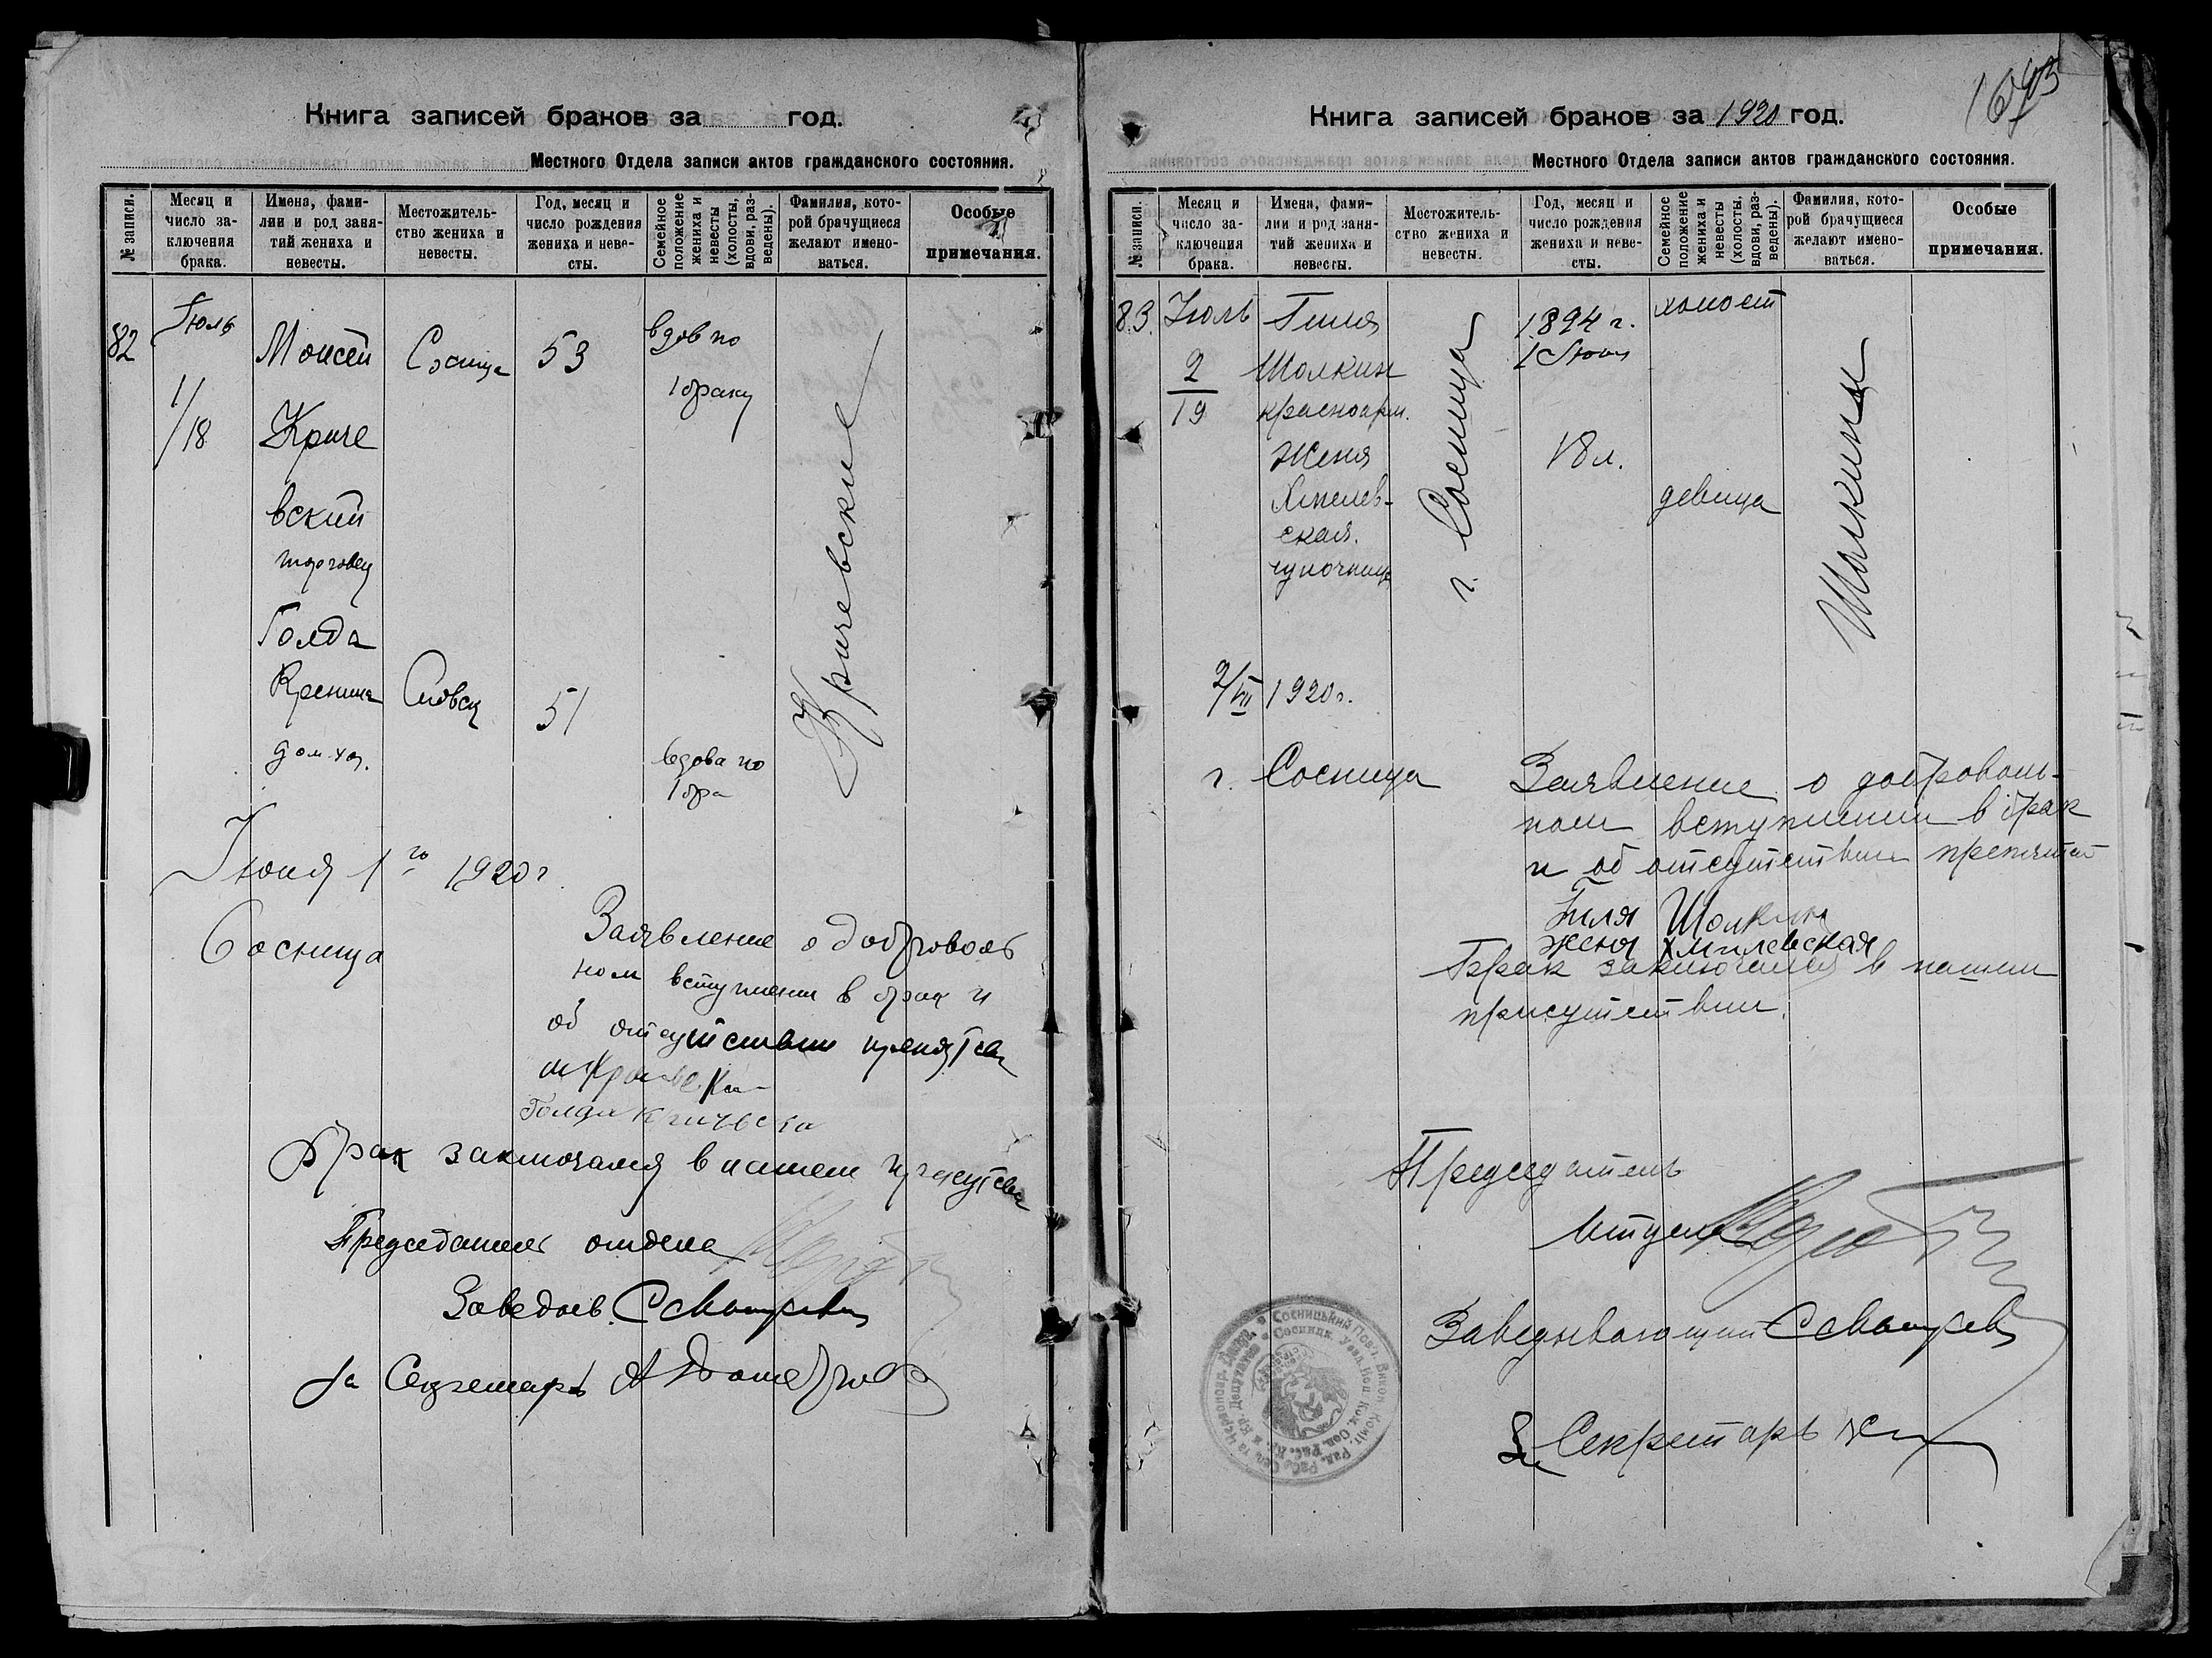 Книга записей браков за год.
Местного Отдела записи актов гражданского состояния.
№ записи.
Месяц и число заключения брака.
Имена, фамилии и род занятий жениха и невесты.
Местожительство жениха и невесты.
Год, месяц и число рождения жениха и невесты.
Семейное положение жениха и невесты (холосты, вдовы, разведены).
Фамилия, которой брачущиеся желают именоваться.
Особые примечания.
82
Июль
1/18
Моисей
Криче
вский
торговец
Сосница
53
вдов по
1 браку
Кричевские
Голда
дом. хоз.
51
вдова по
1 бра
Июля 1го 1920 г
Сосница
Заявление о доброволь
ном вступлении в брак и
об отсутствии препятств
Голда
Брак заключался в нашем присутстви
Председатель отдела
Заведыв.
За Секретарь
1920
Книга записей браков за 1920 год.
Местного Отдела записи актов гражданского состояния.
№ записи.
Месяц и число заключения брака.
Имена, фамилии и род занятий жениха и невесты.
Местожительство жениха и невесты.
Год, месяц и число рождения жениха и невесты.
Семейное положение жениха и невесты (холосты, вдовы, разведены).
Фамилия, которой брачущиеся желают именоваться.
Особые примечания.
83.
Июль
2
19
Гиля
Шолкин
красноарм.
г. Сосница
1894 г.
холост
Женя
Хмелев-
ская.
18 л.
девица
Шолкины
2/VII 1920 г.
г. Сосница
Заявление о доброволь-
ном вступлении в брак
и об отсутствии препятст
Гиля Шолкин
Женя Хмилевская
Брак заключался в нашем
присутствии.
Председатель
Отдела
Заведывающий
За Секретарь